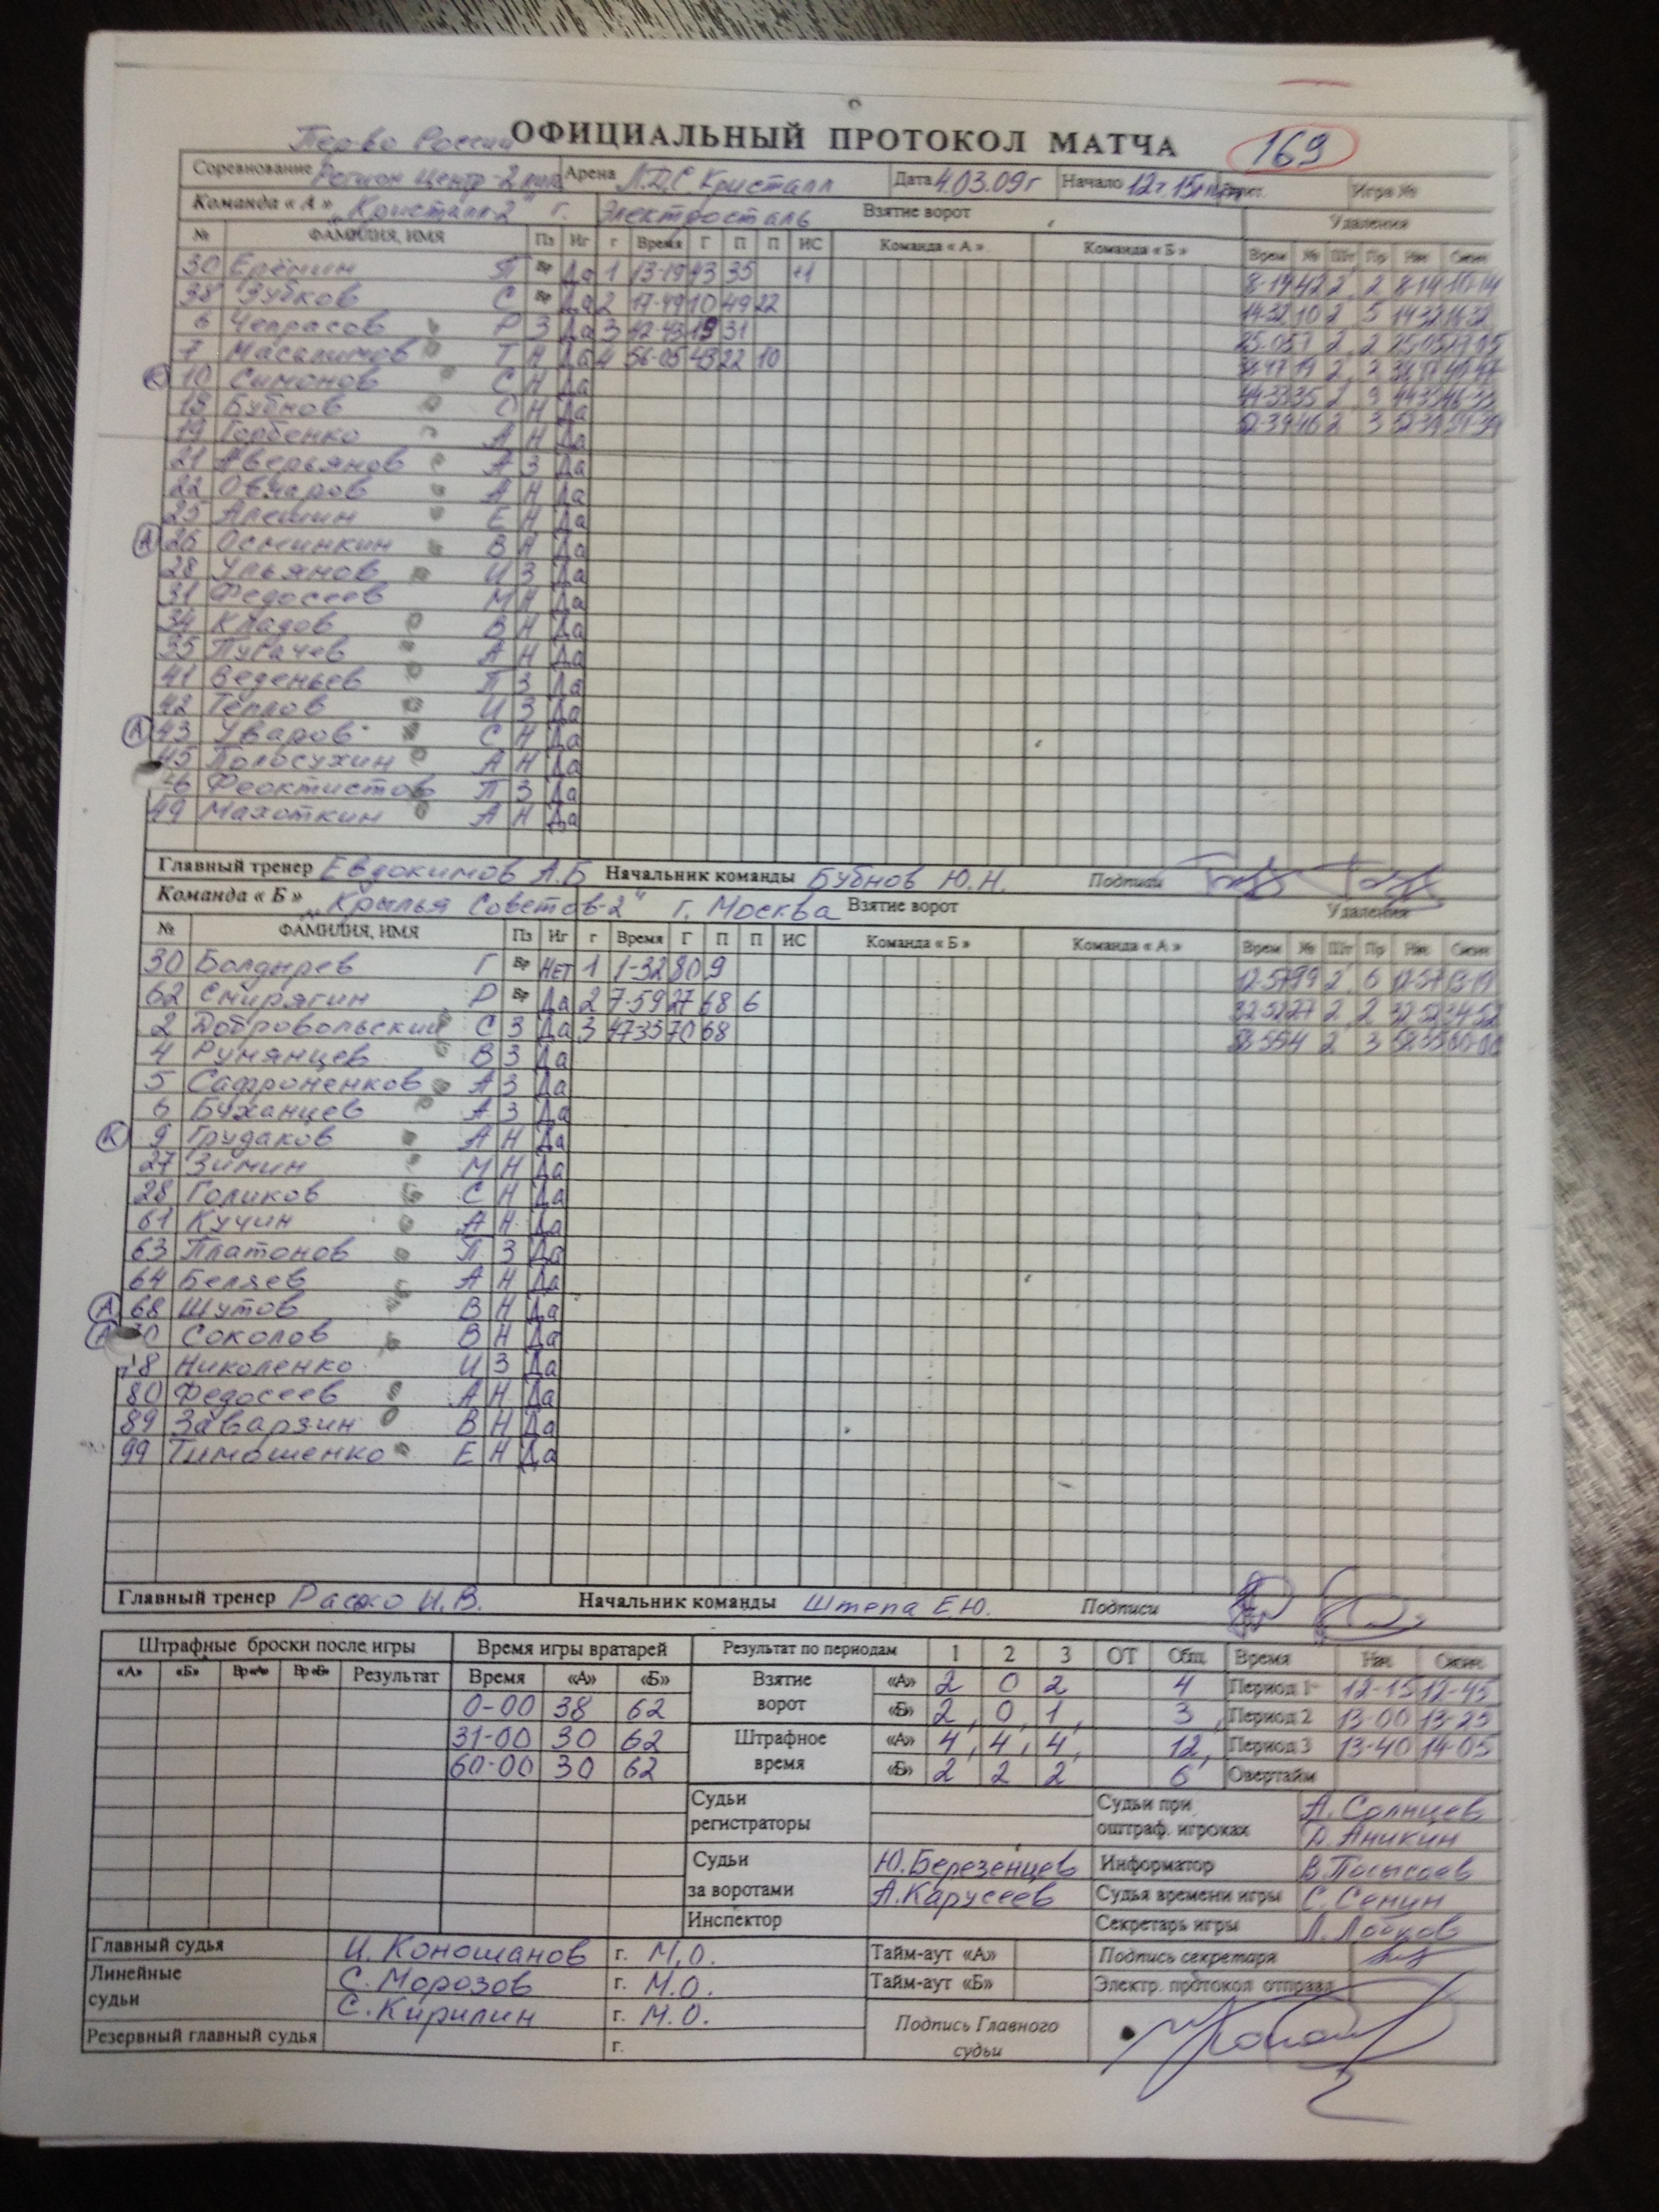 ОФИЦИАЛЬНЫЙ ПРОТОКОЛ МАТЧА 169
Пер-во России
Соревнование Регион Центр-2 Арена Л.Д.С Кристалл Дата 4.03.09г Начало 12ч.15 Игра №
Команда « А » "Кристалл-2" г. Электросталь Взятие ворот Удаления
№ ФАМИЛИЯ, ИМЯ Пз Иг г Время Г П П ИС Команда « А » Команда « Б » Врем № Шт Пр Нач Окон
30 Ерёмин П Вр Да 1 13-19 43 35 +1 8-14 42 2 2 8-14 10-14
38 Зубков С Вр Да 2 17-49 10 49 22 14-32 10 2 5 14-32 16-32
6 Чепрасов Р З Да 3 42-43 19 31 25-05 7 2 2 25-05 27-05
7 Масалимов Т Н Да 4 56-05 43 22 10 19 2 2
К 10 Симонов С Н Да 44-33 35 2 9 44-33 46-33
18 Бубнов С Н Да 52-39 46 2 3 52-39 54-39
19 Горбенко А Н Да
21 Аверьянов А З Да
22 Овчаров А Н Да
25 Алешин Е Н Да
А 26 Осминкин В Н Да
28 Ульянов И З Да
31 Федосеев М Н Да
34 Кладов В Н Да
35 Пугачев А Н Да
41 Веденьев П З Да
42 Теплов И З Да
А 43 Уваров С Н Да
45 Полосухин А Н Да
46 Феоктистов П З Да
49 Махоткин А Н Да
Главный тренер Евдокимов А.Б Начальник команды Бубнов Ю.Н. Подписи
Команда « Б » "Крылья Советов-2" г. Москва Взятие ворот Удаления
№ ФАМИЛИЯ, ИМЯ Пз Иг г Время Г П П ИС Команда « Б » Команда « А » Врем № Шт Пр Нач Окон
30 Болдырев Г Вр НЕТ 1 1-32 80 9 12-57 99 2 6 12-57 13-19
62 Смирягин Р Вр Да 2 7-59 27 68 6 32-52 27 2 2 32-52 34-52
2 Добровольский С З Да 3 47-35 70 68 58-55 4 2 3 58-55 60-00
4 Румянцев В З Да
5 Сафроненков А З Да
6 Буханцев А З Да
К 9 Грудаков А Н Да
27 Зимин М Н Да
28 Голиков С Н Да
61 Кучин А Н Да
63 Платонов П З Да
64 Беляев А Н Да
А 68 Шутов В Н Да
А 70 Соколов В Н Да
78 Николенко И З Да
80 Федосеев А Н Да
89 Заварзин В Н Да
99 Тимошенко Е Н Да
Главный тренер И.В. Начальник команды Штепа Е.Ю. Подписи
Штрафные броски после игры Время игры вратарей Результат по периодам 1 2 3 ОТ Общ Время Нач Окон
«А» «Б» Вр«А» Вр«Б» Результат Время «А» «Б» Взятие ворот «А» 2 0 2 4 Период 1 12-15 12-45
0-00 38 62 «Б» 2 0 1 3 Период 2 13-00 13-25
31-00 30 62 Штрафное время «А» 4 4 4 12 Период 3 13-40 14-05
60-00 30 62 «Б» 2 2 2 6 Овертайм
Судьи регистраторы Судьи при оштраф. игроках А. Солнцев
А. Аникин
Судьи за воротами Ю.Березенцев Информатор
А.Карусеев Судья времени игры С. Сенин
Инспектор Секретарь игры Л. Лобков
Главный судья И. Коношанов г. М.О. Тайм-аут «А» Подпись секретаря
Линейные судьи С. Морозов г. М.О. Тайм-аут «Б» Электр. протокол отправл
С. Кирилин г. М.О. Подпись Главного судьи
Резервный главный судья г.